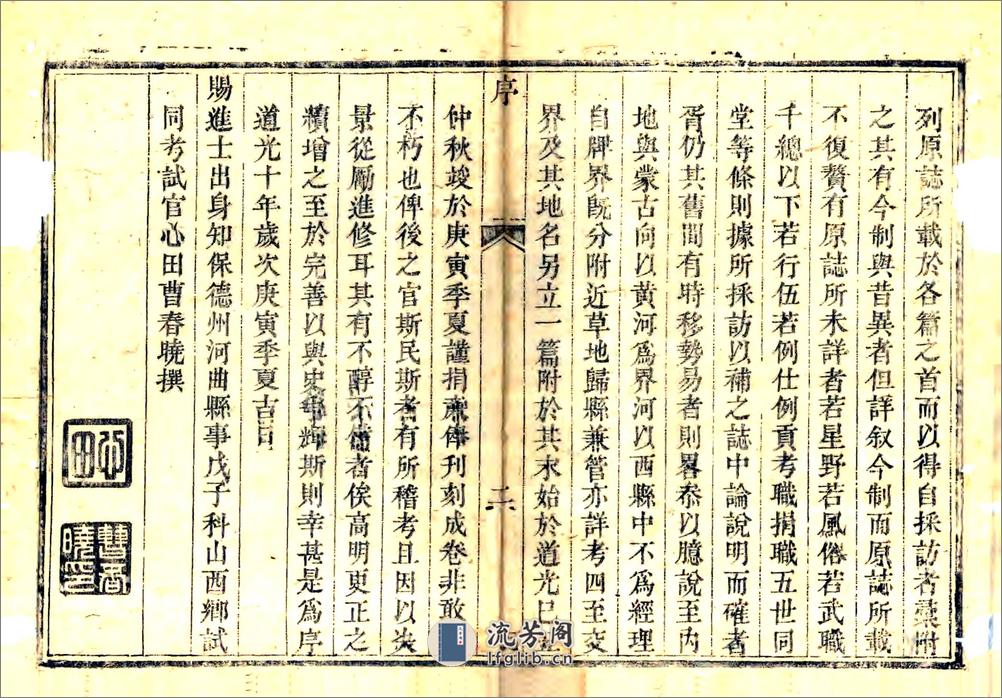 列原誌所載於各篇之首而以得自採訪者彙附
之其有今制與昔異者但詳叙今制而原誌所載
不復贅有原誌所未詳者若星野若風俗若武職
千總以下若行伍若例仕例貢考職捐職五世同
堂等條則據所採訪以補之誌中論說明而確者
胥仍其舊間有時移勢易者則畧叅以臆說至內
地與蒙古向以黃河爲界河以西縣中不爲經理
自牌界旣分附近草地歸縣兼管亦詳考四至交
界及其地名另立一篇附於其末始於道光
序
二
仲秋竣於庚寅季夏謹捐亷俸刊刻成卷非敢
不朽也俾後之官斯民斯者有所稽考且因以
景從勵進修耳其有不醇不備者俟高明更正之
續增之至於完善以與史乘輝斯則幸甚是爲序
道光十年歲次庚寅季夏吉日
賜進士出身知保德州河曲縣事戊子科山西鄉試
同考試官心田曹春曉撰
心田
曹春曉印
流芳阁
lfglib.cn